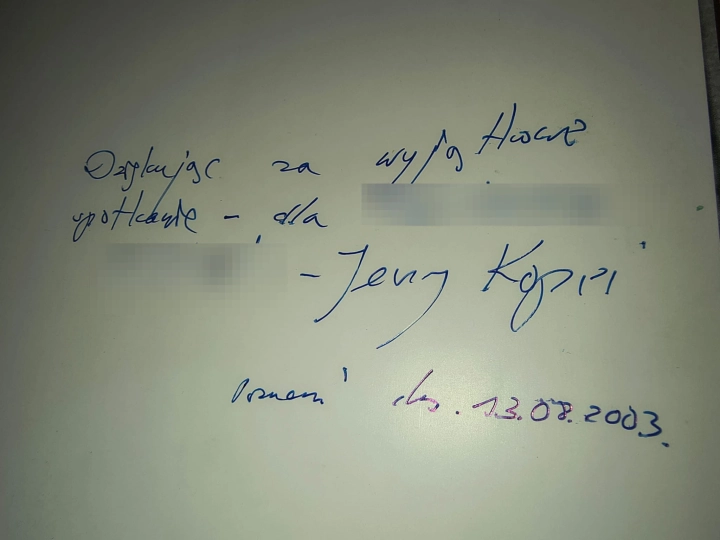 Dziękując za wyjątkowe
spotkanie - dla
- Jerzy
Poznań dn. 13.08.2003.